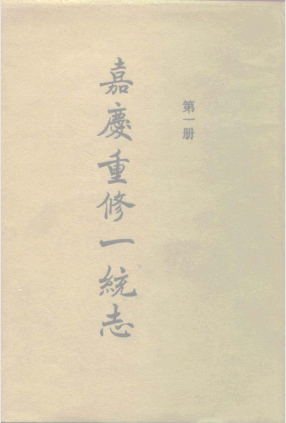 第一册
嘉慶重修一統志